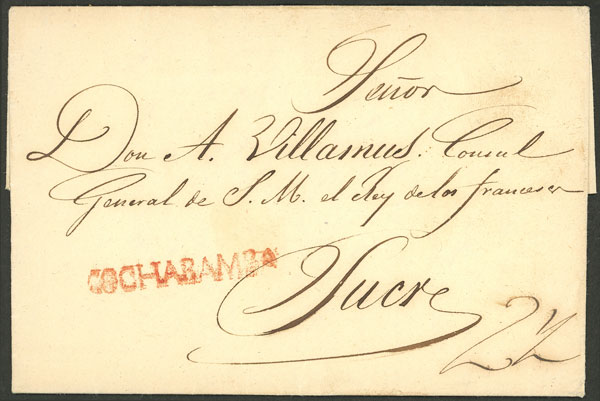 Señor
Don A. Villamus. Consul
General de S. M. el Rey de los franceses
COCHABAMBA
Sucre